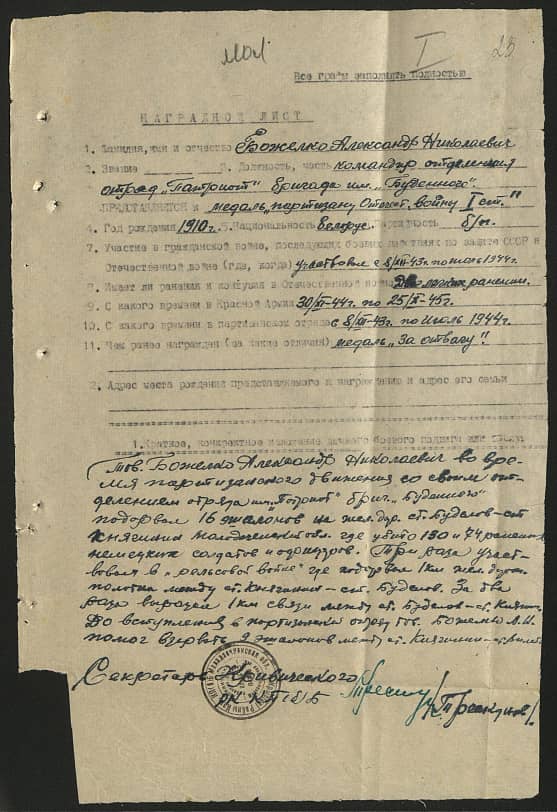 I
25
Все графы заполнять полностью
НАГРАДНОЙ ЛИСТ
1. Фамилия, имя и отчество Божелко Александр Николаевич
2. Звание 3. Должность, часть командир отделения
отряд "Патриот" бригада им. "Буденного".
ПРЕДСТАВЛЯЕТСЯ к медаль "партизану Отечест. войны I ст."
4. Год рождения 1910 г. 5. Национальность Белорус. 6. Партийность б/п.
7. Участие в гражданской войне, последующих боевых действиях по защите СССР и
Отечественной войне (где, когда) участвовал с 8/VIII-43г. по июль 1944г.
8. Имеет ли ранения и контузия в Отечественной войне Два легких ранения.
9. С какого времени в Красной Армии по 25/X-45г.
10. С какого времени в партизанском отряде с 8/VIII-43г. по Июль 1944г.
11. Чем ранее награжден (за какие отличия) медаль "За отвагу".
2. Адрес места рождения представляемого к награждению и адрес его семьи
1. Краткое, конкретное изложение личного боевого подвига или заслуг
Тов. Божелко Александр Николаевич во вре-
мя партизанского движения со своим от-
делением отряда им. "Патриот" бриг. "Буденного"
подорвал 16 эшалонов на жел. дор. ст. Будслов - ст.
Княгинин молодеченской обл. где убито 130 и 74 ранено
немецких солдатов и офицеров. Три раза участ-
вовал в "рельсовой войне" где подорвал 1 км жел. дорож.
полотна между ст. Княгинин - ст. Будслов. За два
раза вырезал 1 км связи между ст. Будслов - ст. Княгин.
До вступления в партизанский отряд тов. Божелко А.Н.
помог взорвать 2 эшалонов между ст. Княгинин - ст.
Секретарь Кривического
РК КП(б)Б